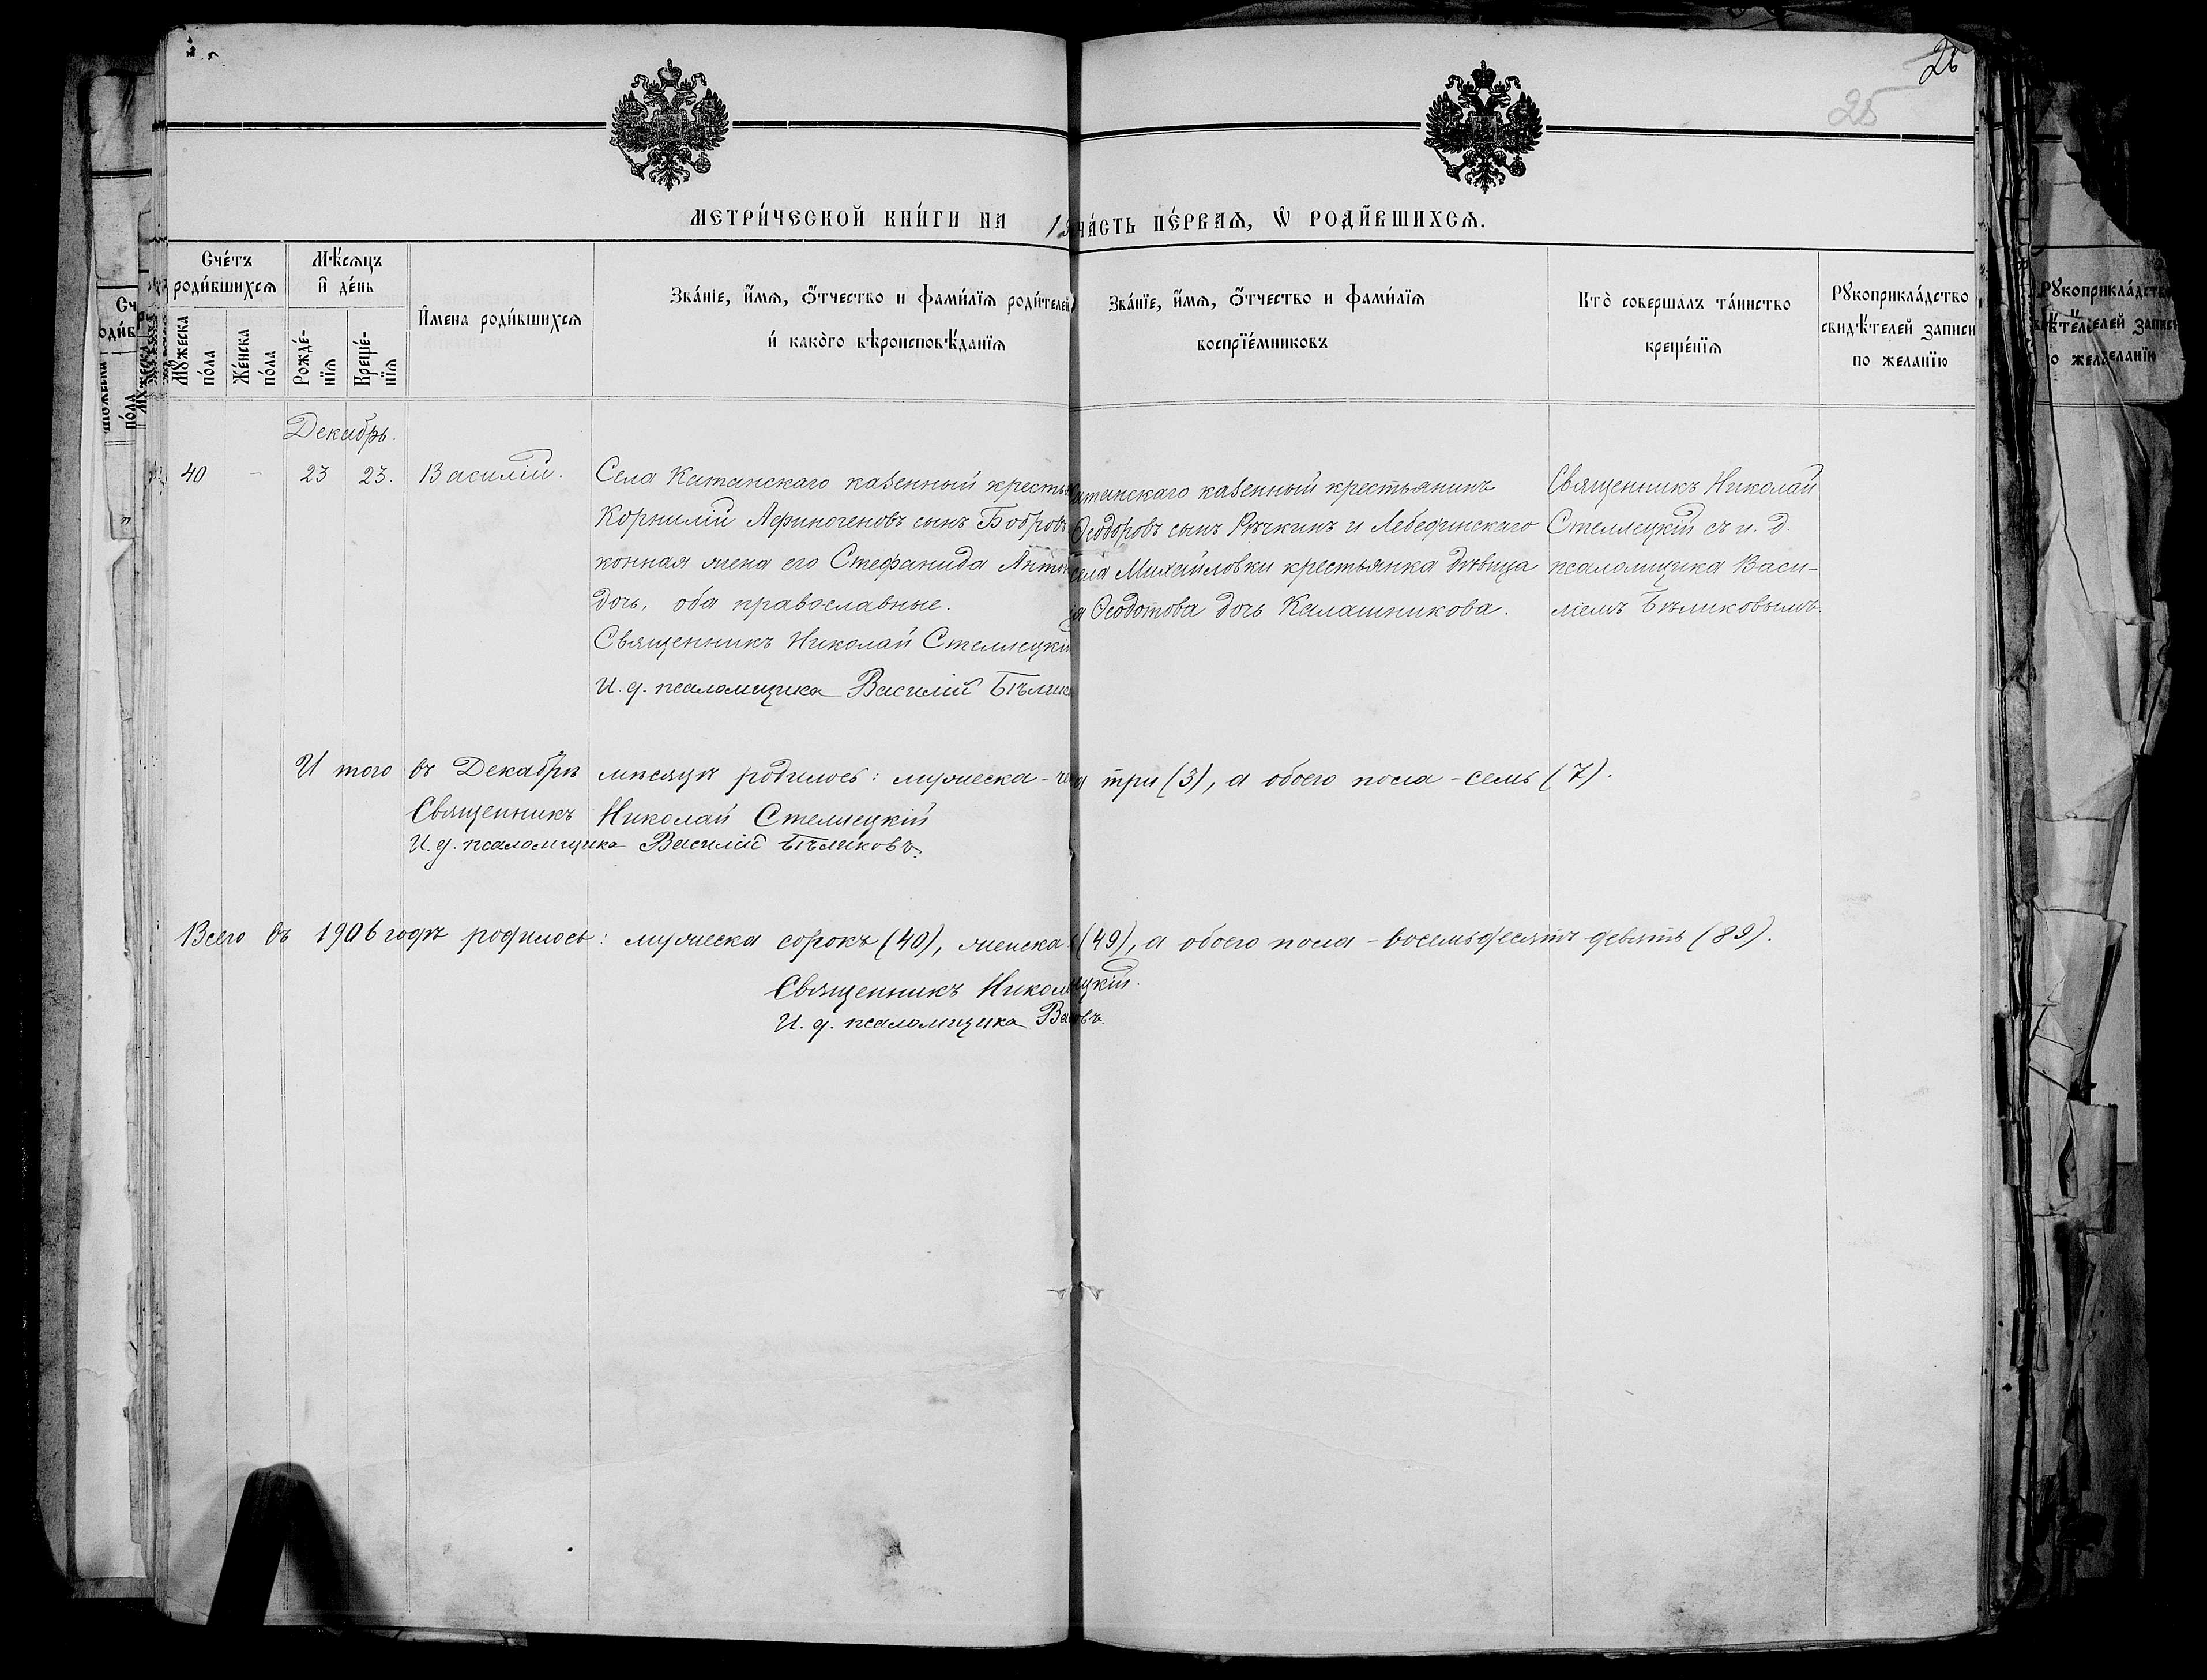 26
25
МЕТРИ́ЧЕСКОЙ КНИ́ГИ НА 19
ЧА́СТЬ ПЕ́РВАѦ, Ѡ҆ РОДИ́ВШИХСѦ.
Сче́тъ
роди́вшихсѧ
Мꙋ́жеска
по́ла
Же́нска
по́ла
Мѣ́сѧцъ
и҆ де́нь
Рожде́-
нїѧ
Креще́-
нїѧ
И҆мена роди́вшихсѧ
Зва́нїе, и҆́мѧ, ѻ҆́тчество и фами́лїѧ родителей,
и҆ како́го вѣроисповѣ́данїѧ
Зва́нїе, и҆́мѧ, ѻ҆́тчество и фами́лїѧ
воспрїе́мниковъ
Кто̀ соверша́лъ та́инство
креще́нїѧ
Рꙋкоприкла́дство
свидѣ́телей записи
по жела́нїю
Декабрь.
40 - 23 23. Василій.
Села Катанскаго казенный кресть
Корнилій Афиногеновъ сынъ Бобровъ
конная жена его Стефанида Антон
дочь, оба православные.
Священникъ Николай Стеллецкій
И. д. псаломщика Василій Бѣлик
танскаго казенный крестьянинъ
Ѳеодоровъ сынъ Рѣчкинъ и Лебединскаго
села Михайловки крестьянка дѣвица
Ѳеодотова дочь Калашникова.
Священникъ Николай
Стеллецкій съ и. д.
псаломщика Васи-
ліемъ Бѣликовымъ.
И того въ Декабрѣ мѣсяцѣ родилось: мужеска - че три (3), а обоего пола - семь (7).
Священникъ Николай Стеллецкій
И. д. псаломщика Василій Бѣликовъ.
Всего въ 1906 годѣ родилось: мужеска сорокъ (40), женска (49), а обоего пола - восемьдесятъ девять (89).
Священникъ Никол цкій.
И. д. псаломщика Ва овъ.